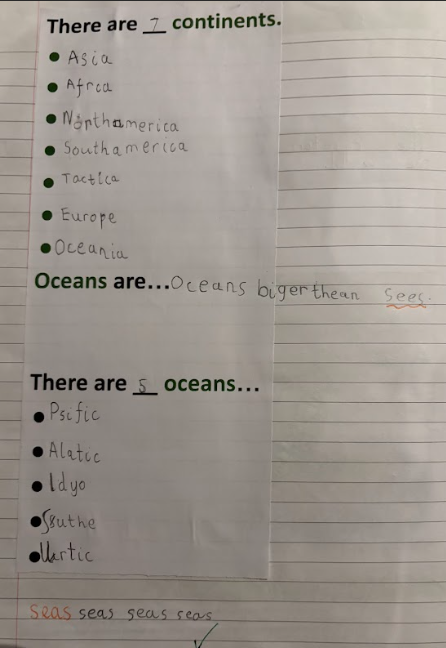 There are 7 continents.
Asia
Afrca
Northamerica
Southamerica
Tactica
Europe
Oceania
Oceans are...Oceans biger thean Sees.
There are 5 oceans...
Psific
Alatic
Idyo
Southe
Artic
seas seas seas seas